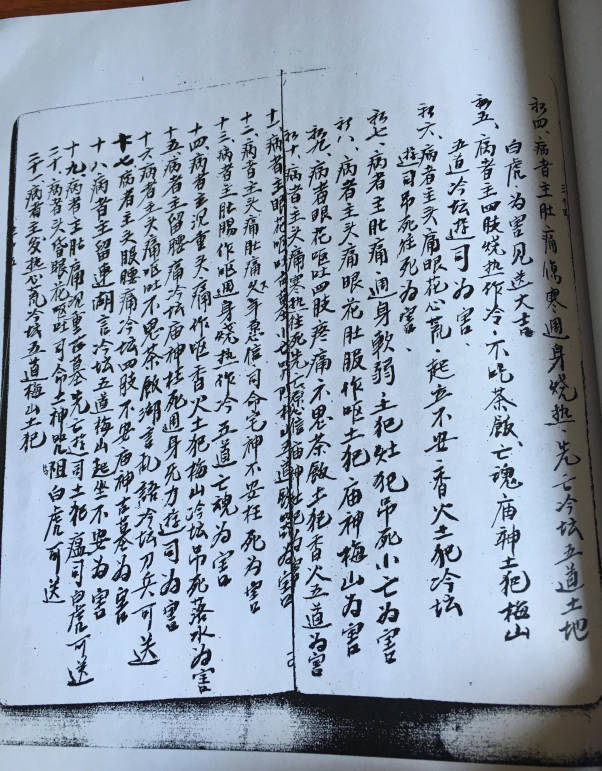 初四、病者主肚痛傷寒週身燒热先亡冷坛五道土地
白虎为害见送大吉
初五、病者主四肢燒热作冷不吃茶飯亡魂庙神土犯梅山
五道冷坛遊司为害、
初六、病者主头痛眼花心荒起立不安香火土犯冷坛
遊司吊死枉死为害、
初七、病者主肚痛週身軟弱主犯灶犯吊死小亡为害
初八、病者主头痛眼花肚服作呕土犯庙神梅山为害
初九、病者眼花呕吐四肢疼痛不思茶飯土犯香火五道为害
初十、病者主头痛寒热枉死先亡愿信庙神
十一病者主眼花呕吐
十二、病者主头痛肚痛久年愿信司命宅神不安枉死为害
十三、病者主肚腸作呕週身燒热作冷五道亡魂为害
十四病者主沉重头痛作呕香火土犯梅山冷坛吊死落水为害
十五病者主留腰痛冷坛庙神枉死週身无力遊司为害
十六病者主头痛呕吐不思茶飯湖言乱語冷坛刀兵可送
十七病者主头眼腰痛冷坛四肢不安庙神古墓为害
十八病者主留連湖言冷坛五道梅山起坐不安为害
十九病者主肚痛沉重古墓先亡遊司土犯瘟司白虎可送
二十、病者头昏眼花呕吐司命土神咒咀白虎可送
二十一病者主发热心荒冷坛五道梅山土犯